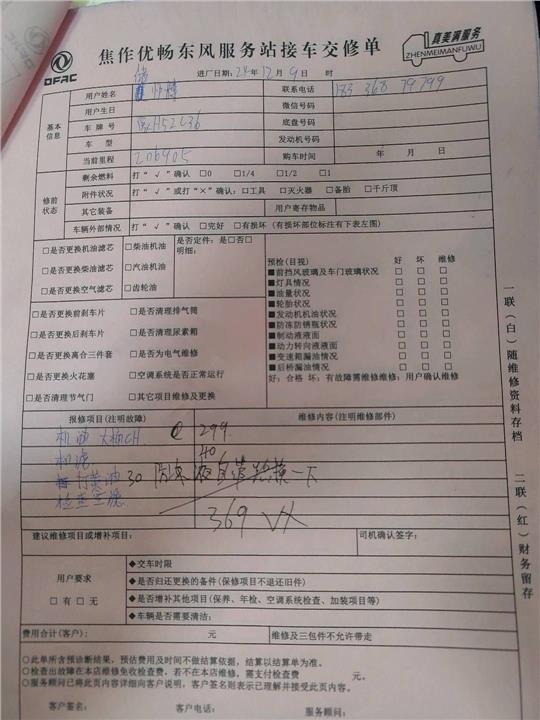 DFAC
焦作优畅东风服务站接车交修单
真美满服务
ZHENMEIMANFUWU
进厂日期：24年12月9日 时
基本信息
用户姓名
联系电话 183 368 79799
用户生日
微信号码
车牌号 H52C36
底盘号码
车型
发动机号码
当前里程 206905
购车时间 年 月 日
修前状态
剩余燃料 打“√”确认 □0 □1/4 □1/2 □1
附件状况 打“√”或打“×”确认：□工具 □灭火器 □备胎 □千斤顶
其它装备
用户寄存物品
车辆外部情况 打“√”确认 □完好 □有损坏（有损坏部位标注有下表左图）
□是否更换机油滤芯 □柴油机油
□是否更换柴油滤芯 □汽油机油
□是否更换空气滤芯 □齿轮油
是否定件：是□否□
明细：
□是否更换前刹车片 □是否清理排气筒
□是否更换后刹车片 □是否清理尿素箱
□是否更换离合三件套 □是否为电气维修
□是否更换火花塞 □空调系统是否正常运行
□是否清理节气门 □其它项目维修及更换
预检(目视) 好 坏 维修
■前挡风玻璃及车门玻璃状况 □ □ □
■灯具情况 □ □ □
■油量状况 □ □ □
■轮胎状况 □ □ □
■发动机机油状况 □ □ □
■防冻防锈瓶状况 □ □ □
■制动液液面 □ □ □
■动力转向液液面 □ □ □
■变速箱漏油情况 □ □ □
■后桥漏油情况 □ □ □
好：合格 坏：有故障需维修维修：用户确认维修
报修项目(注明故障)
维修内容(注明维修部件)
机油 CH 299
机滤 40
打黄油 30
检查空滤
369
建议维修项目或增补项目：
司机确认签字：
用户要求
□有□无
◆交车时限
◆是否归还更换的备件(保修项目不退还旧件)
◆是否增补其他项目(保养、年检、空调系统检查、加装项目等)
◆车辆是否需要清洁：
费用合计(客户)： 元
维修及三包件不允许带走
○此单所含预诊断结果，预估费用及时间不做结算依据，结算以结算单为准。
○检查出故障在本店维修免收检查费，若不在本店维修，需支付检查费 元。
○服务顾问已将此页内容详细向客户说明，客户签名则表示已理解并接受此页内容。
客户签名： 客户电话： 服务顾问：
一联（白）随维修资料存档
二联（红）财务留存